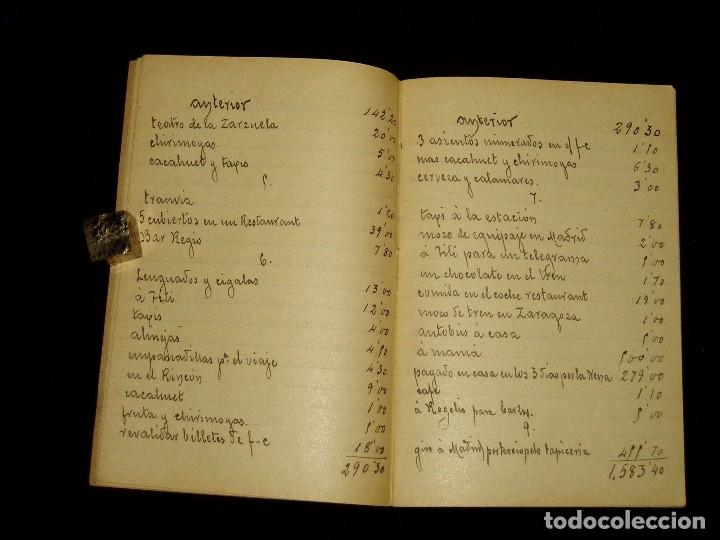 anterior 142'20
teatro de la Zarzuela 20'00
chirimoyas 5'00
cacahuet y tapis 4'30
5.
tranvia 1'20
5 cubiertos en un Restaurant 39'00
Bar Regio 7'80
6.
Lenguados y cigalas 13'00
á Titi 12'00
tapis 4'00
almejas 4'50
empanadillas pª el viaje 4'30
en el Rincón 9'00
cacahuet 1'00
fruta y chirimoyas. 5'00
revalidar billetes de f-c 18'00
290'30
anterior 290'30
3 asientos numerados en el f-c 1'10
mas cacahuet y chirimoyas 6'30
cerveza y calamares. 3'00
7.
tapi á la estación 7'80
mozo de equipaje en Madrid 2'00
á Titi para un telegrama 5'00
un chocolate en el tren 1'70
comida en el coche restaurant 19'00
mozo de tren en Zaragoza 1'00
autobús á casa 5'00
á mamá 500'00
pagado en casa en los 3 días por la Nena 279'00
café 1'10
á Rogelis para Carlos. 5'00
9.
giro á Madrid por terciopelo tapiceria 455'70
1.583'40
todocoleccion